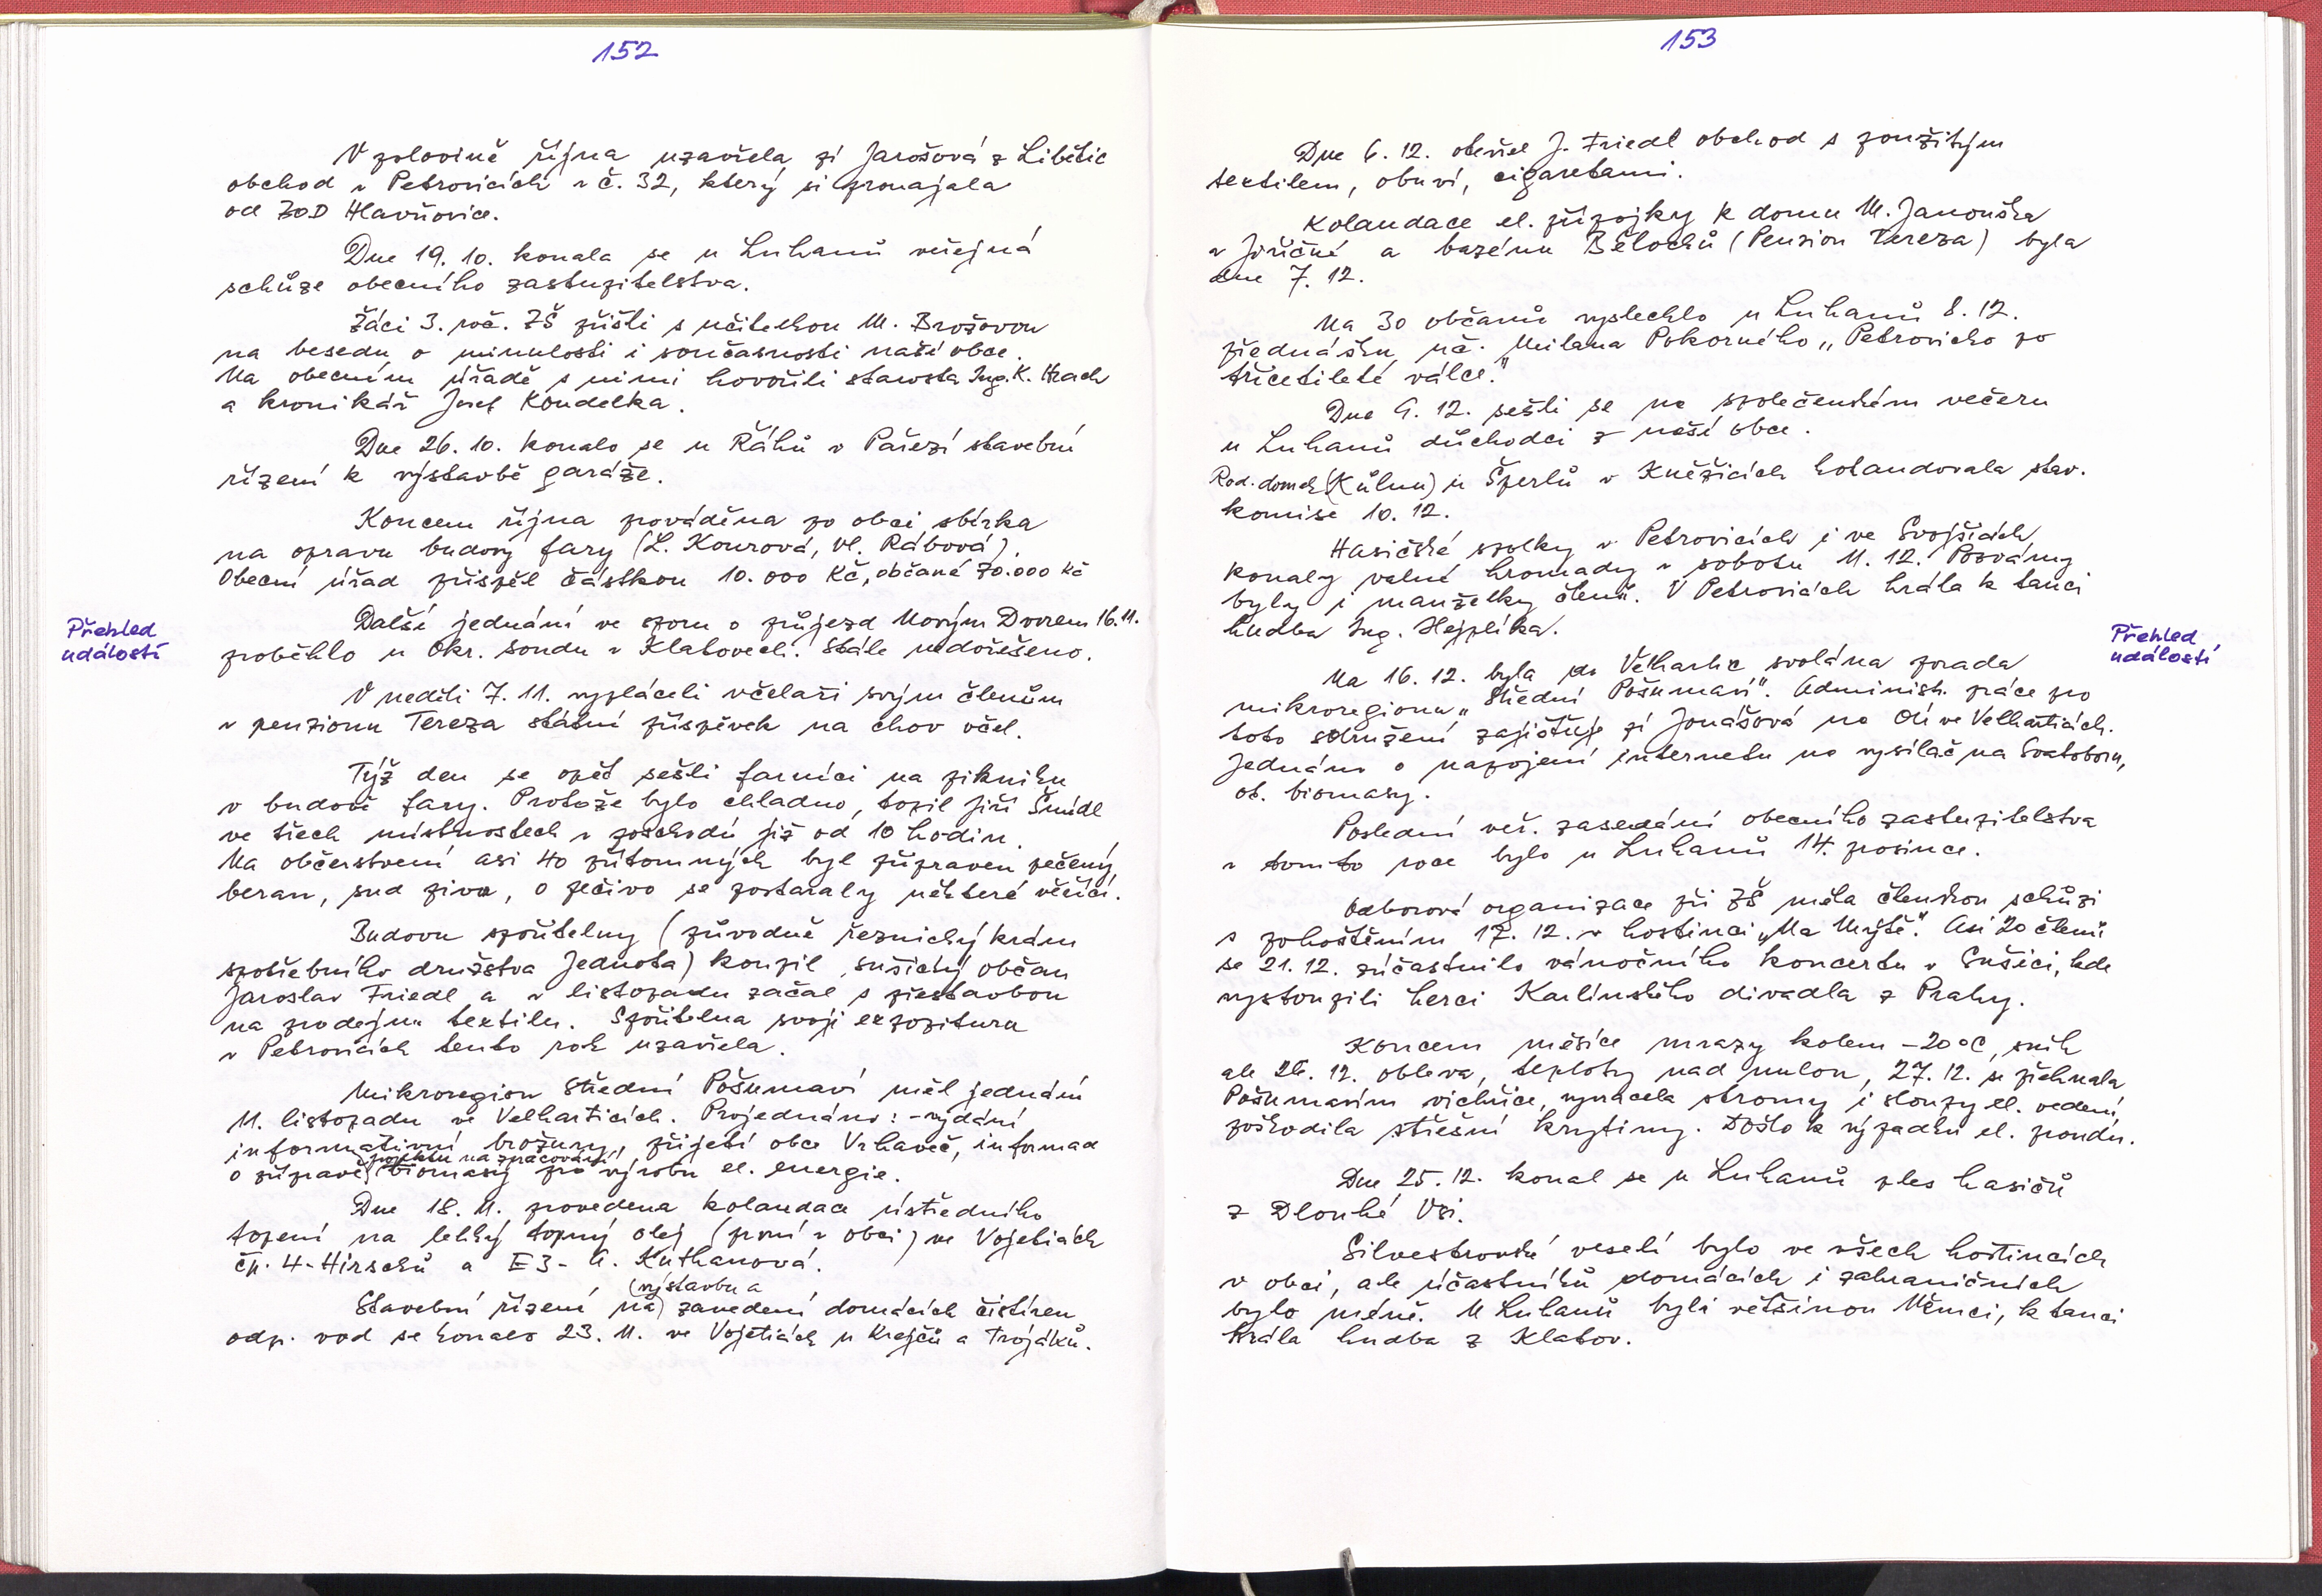 152
V polovině října uzavřela pí Jarošová z Libětic
obchod v Petrovicích v č. 32, který si pronajala
od ZOD Hlavňovice.
Dne 19. 10. konala se u Luhanů veřejná
schůze obecního zastupitelstva.
Žáci 3. roč. ZŠ přišli s učitelkou M. Brožovou
na besedu o minulosti i současnosti naší obce.
Na obecním úřadě s nimi hovořili starosta Ing. K. Hrach
a kronikář Josef Koudelka.
Dne 26. 10. konalo se u Ráhů v Pařezí stavební
řízení k výstavbě garáže.
Koncem října prováděna po obci sbírka
na opravu budovy fary (L. Kourová, Vl. Rábová).
Obecní úřad přispěl částkou 10.000 Kč, občané 70.000 Kč
Přehled
událostí
Další jednání ve sporu o průjezd Novým Dvorem 16.11.
proběhlo u Okr. soudu v Klatovech. Stále nedořešeno.
V neděli 7. 11. vypláceli včelaři svým členům
v penzionu Tereza státní příspěvek na chov včel.
Týž den se opět sešli farníci na pikniku
v budově fary. Protože bylo chladno, topil Jiří Šmídl
ve třech místnostech v poschodí již od 10 hodin.
Na občerstvení asi 40 přítomných byl připraven pečený
beran, sud piva, o pečivo se postaraly některé věřící.
Budovu spořitelny (původně řeznický krám
spotřebního družstva Jednota) koupil sušický občan
Jaroslav Friedl a v listopadu začal s přestavbou
na prodejnu textilu. Spořitelna svoji expozituru
v Petrovicích tento rok uzavřela.
Mikroregion Střední Pošumaví měl jednání
11. listopadu ve Velharticích. Projednáno: - vydání
informativní brožury, přijetí obce Vrhaveč, informace
projektu na zpracování
o přípravě biomasy pro výrobu el. energie.
Dne 18. 11. provedena kolaudace ústředního
topení na lehký topný olej (první v obci) ve Vojeticích
čp. 4-Hirschů a E3- A. Kuthanová.
(výstavbu a
Stavební řízení na) zavedení domácích čistíren
odp. vod se konalo 23. 11. ve Vojeticích u Krejčů a Trojáků.
153
Dne 6. 12. otevřel J. Friedl obchod s použitým
textilem, obuví, cigaretami.
Kolaudace el. přípojky k domu M. Janouška
v Jiřičné a bazénu Bělochů (Pension Tereza) byla
dne 7. 12.
Na 30 občanů vyslechlo u Luhanů 8. 12.
přednášku uč. Milana Pokorného „Petrovicko po
třicetileté válce."
Dne 9. 12. sešli se na společenském večeru
u Luhanů důchodci z naší obce.
Rod. domek (Kůlnu) u Šperlů v Kněžicích kolaudovala stav.
komise 10. 12.
Hasičské spolky v Petrovicích i ve Svojšicích
konaly valné hromady v sobotu 11. 12. Pozvány
byly i manželky členů. V Petrovicích hrála k tanci
hudba Ing. Hejplíka.
Přehled
událostí
Na 16. 12. byla do Velhartic svolána porada
mikroregionu „Střední Pošumaví". Administr. práce pro
toto sdružení zajišťuje pí Jonášová na OÚ ve Velharticích.
Jednáno o napojení internetu na vysílač na Svatoboru,
ot. biomasy.
Poslední veř. zasedání obecního zastupitelstva
v tomto roce bylo u Luhanů 14. prosince.
Odborová organizace při ZŠ měla členskou schůzi
s pohoštěním 17. 12. v hostinci „Na Mýtě". Asi 20 členů
se 21. 12. zúčastnilo vánočního koncertu v Sušici, kde
vystoupili herci Karlínského divadla z Prahy.
Koncem měsíce mrazy kolem -20°C, sníh
ale 26. 12. obleva, teploty nad nulou, 27. 12. se přehnala
Pošumavím vichřice, vyvracela stromy i sloupy el. vedení,
poškodila střešní krytiny. Došlo k výpadku el. proudu.
Dne 25. 12. konal se u Luhanů ples hasičů
z Dlouhé Vsi.
Silvestrovské veselí bylo ve všech hostincích
v obci, ale účastníků domácích i zahraničních
bylo méně. U Luhanů byli většinou Němci, k tanci
hrála hudba z Klatov.